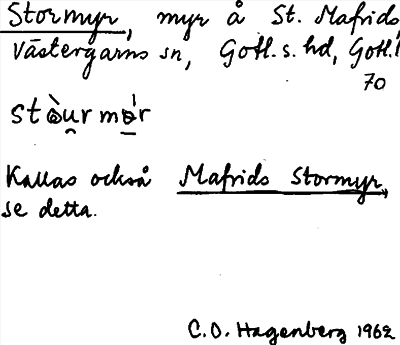 Stormyr, myr å St. Mafrids
Västergarns sn, Gotl. s. hd, Gotl. l
70
Kallas också Mafrids Stormyr,
se detta.
C. O. Hagenberg 1962